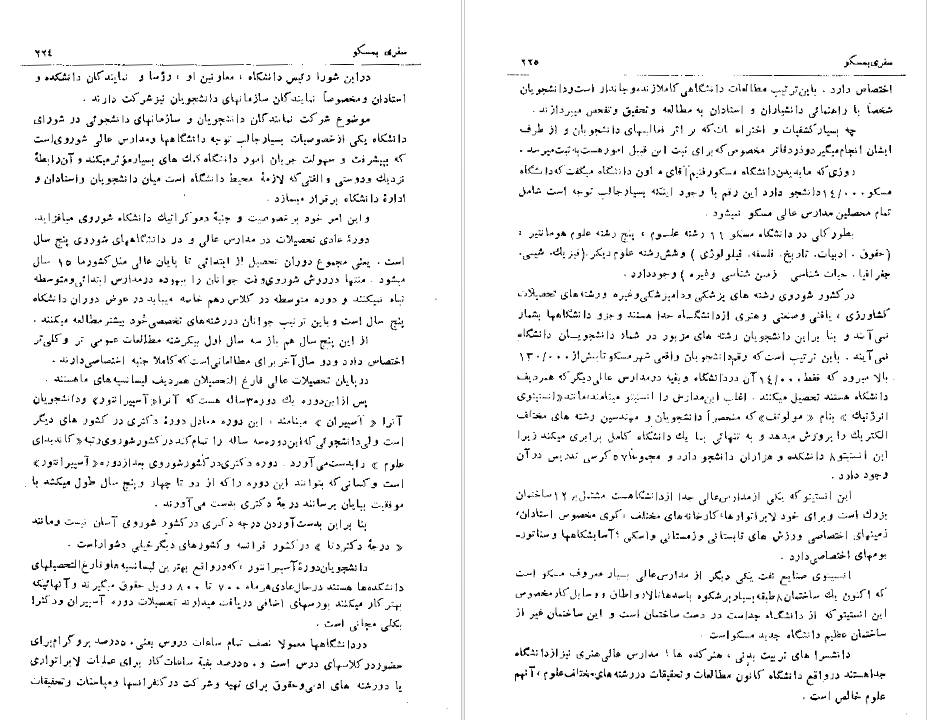 سفری بمسکو
۲۲۴
دراین شورا رئیس دانشگاه ، معاونین او ، رؤسا و نمایندگان دانشکده و
استادان ومخصوصاً نمایندگان سازمانهای دانشجویان نیزشرکت دارند .
موضوع شرکت نمایندگان دانشجویان و سازمانهای دانشجوئی در شورای
دانشگاه یکی ازخصوصیات بسیارجالب توجه دانشگاهها ومدارس عالی شوروی‌است
که بپیشرفت و سهولت جریان امور دانشگاه کمک های بسیارمؤثرمیکند و آن‌رابطهٔ
نزدیك ودوستی والفتی‌که لازمهٔ محیط دانشگاه است میان دانشجویان راستادان و
ادارهٔ دانشگاه برقرار میسازد .
و این امر خود برخصوصیت و جنبهٔ دموکراتیك دانشگاه شوروی میافزاید.
دورهٔ عادی تحصیلات در مدارس عالی و در دانشگاههای شوروی پنج سال
است . یعنی مجموع دوران تحصیل از ابتدائی تا پایان عالی مثل‌کشورما ۱۵ سال
میشود . منتها درروش شوروی‌وقت جوانان را بیهوده درمدارس ابتدائی‌ومتوسطه
تباه نمیکنند و دوره متوسطه در کلاس دهم خاتمه میباید در عوض دوران دانشگاه
پنج سال است و باین ترتیب جوانان دررشته‌های تخصصی‌خود بیشترمطالعه میکنند .
از این پنج سال هم باز سه سال اول بیکرشته مطالعات عمومی تر وکلی‌تر
اختصاص دارد ودو سال‌آخربرای مطالعاتی‌است که‌کاملا جنبه اختصاصی‌دارند.
درپایان تحصیلات عالی فارغ التحصیلان همردیف لیسانسیه های ماهستند .
پس ازاین‌دوره یك دوره۳ساله هست‌که آنرا«آسپیرانتور» ودانشجویان
آنرا « آسپیران » مینامند ، این دوره معادل دورهٔ دکتری در کشور های دیگر
است ولی‌دانشجوئی‌که این‌دوره‌سه ساله را تمام‌کند درکشورشوروی‌رتبه «کاندیدای
علوم » رابدست‌می‌آورد . دوره دکتری‌درکشورشوروی بعدازدوره« آسپیرانتور»
است وکسانی‌که بتوانند این دوره راکه از دو تا چهار وپنج سال طول میکشد با
موفقیت بپایان برسانند درجهٔ دکتری بدست می‌آورند .
بنا براین بدست‌آوردن درجه دکتری درکشور شوروی آسان نیست ومانند
« درجهٔ دکتردتا » درکشور فرانسه و کشورهای دیگرخیلی دشواراست .
دانشجویان‌دورهٔ‌آسپیرانتور ، که‌درواقع بهترین لیسانسیه‌هاوفارغ‌التحصیلهای
دانشکده‌ها هستند درحال‌عادی‌هرماه ۷۰۰ تا ۸۰۰ روبل حقوق میگیرند و آنهائیکه
بهترکار میکنند بورسهای اضافی دریافت میدارند تحصیلات دوره آسپیران ودکترا
بکلی مجانی است .
دردانشگاهها معمولا نصف تمام ساعات دروس یعنی، ۵۰درصد پروگرام‌برای
حضوردرکلاسهای درس است و ۵۰درصد بقیهٔ ساعات‌کار برای عملیات لابراتواری
یا دررشته های ادبی‌وحقوق برای تهیه وشرکت درکنفرانسها ومباحثات وتحقیقات
سفری‌بمسکو
۲۲۵
اختصاص دارد . باین‌ترتیب مطالعات دانشگاهی‌کاملازنده‌وجاندار است‌ودانشجویان
شخصاً با راهنمائی دانشیاران و استادان به مطالعه وتحقیق وتفحص میپردازند .
چه بسیارکشفیات و اختراعات‌که بر اثر فعالیتهای دانشجویان و از طرف
ایشان انجام‌میگیردودردفاتر مخصوص‌که‌برای ثبت این قبیل امورهست‌به‌ثبت‌میرسد .
روزی‌که مابدیدن‌دانشگاه مسکورفتیم‌آقای‌معاون دانشگاه میگفت‌که‌دانشگاه
مسکو۱۴/۰۰۰دانشجو دارد این رقم با وجود اینکه بسیارجالب توجه است شامل
تمام محصلین مدارس عالی مسکو نمیشود .
بطورکلی در دانشگاه مسکو ۱۱ رشته علوم ، پنج رشته علوم هومانتیر ،
(حقوق . ادبیات. تاریخ. فلسفه. فیلولوژی ) وشش‌رشته علوم دیگر.(فیزیك. شیمی.
جغرافیا . حیات شناسی . زمین شناسی وغیره ) وجوددارد .
درکشور شوروی رشته های پزشکی ودامپزشکی‌وغیره ورشته‌های تحصیلات
کشاورزی ، یافنی وصنعتی وهنری ازدانشگاه جدا هستند وجزو دانشگاهها بشمار
نمی‌آیند و بنا براین دانشجویان رشته های مزبور در شمار دانشجویان دانشگاه
نمی‌آیند . باین ترتیب است که رقم‌دانشجویان واقعی شهرمسکو تابیش‌از۱۳۰/۰۰۰
بالا میرود که فقط ۱۴/۰۰۰آن دردانشگاه وبقیه درمدارس عالی‌دیگرکه همردیف
دانشگاه هستند تحصیل میکنند . اغلب این‌مدارس را انستیتو مینامند،مانند«انستیتوی
انرژتیك » بنام « مولوتف»که منحصراً دانشجویان و مهندسین رشته های مختلف
الکتریك را پرورش میدهد و به تنهائی بما یك دانشگاه کامل برابری میکند زیرا
این انستیتو۸ دانشکده و هزاران دانشجو دارد و مجموعاً۵۷کرسی تدریس درآن
وجود دارد .
این انستیتوکه یکی ازمدارس‌عالی جدا ازدانشگاهست مشتمل‌بر۱۲ساختمان
بزرك است وبرای خود لابراتوارها،کارخانه‌های مختلف ،کوی مخصوص استادان،
زمینهای اختصاصی ورزش های تابستانی وزمستانی واسکی ؛آسایشگاهها وسناتور-
یومهای اختصاصی‌دارد .
انستیتوی صنایع نفت یکی دیگر از مدارس‌عالی بسیار معروف مسکو است
که اکنون یك ساختمان ۸طبقه بسیارپرشکوه باصدهاتالارواطاق ووسایل‌کارمخصوص
این انستیتوکه از دانشگاه جداست در دست ساختمان است و این ساختمان غیر از
ساختمان عظیم دانشگاه جدید مسکو است .
دانشسرا های تربیت بدنی ، هنرکده ها ؛ مدارس عالی‌هنری نیزازدانشگاه
جداهستند درواقع دانشگاه کانون مطالعات و تحقیقات دررشته‌های‌مختلف‌علوم ، آنهم
علوم خالص است .